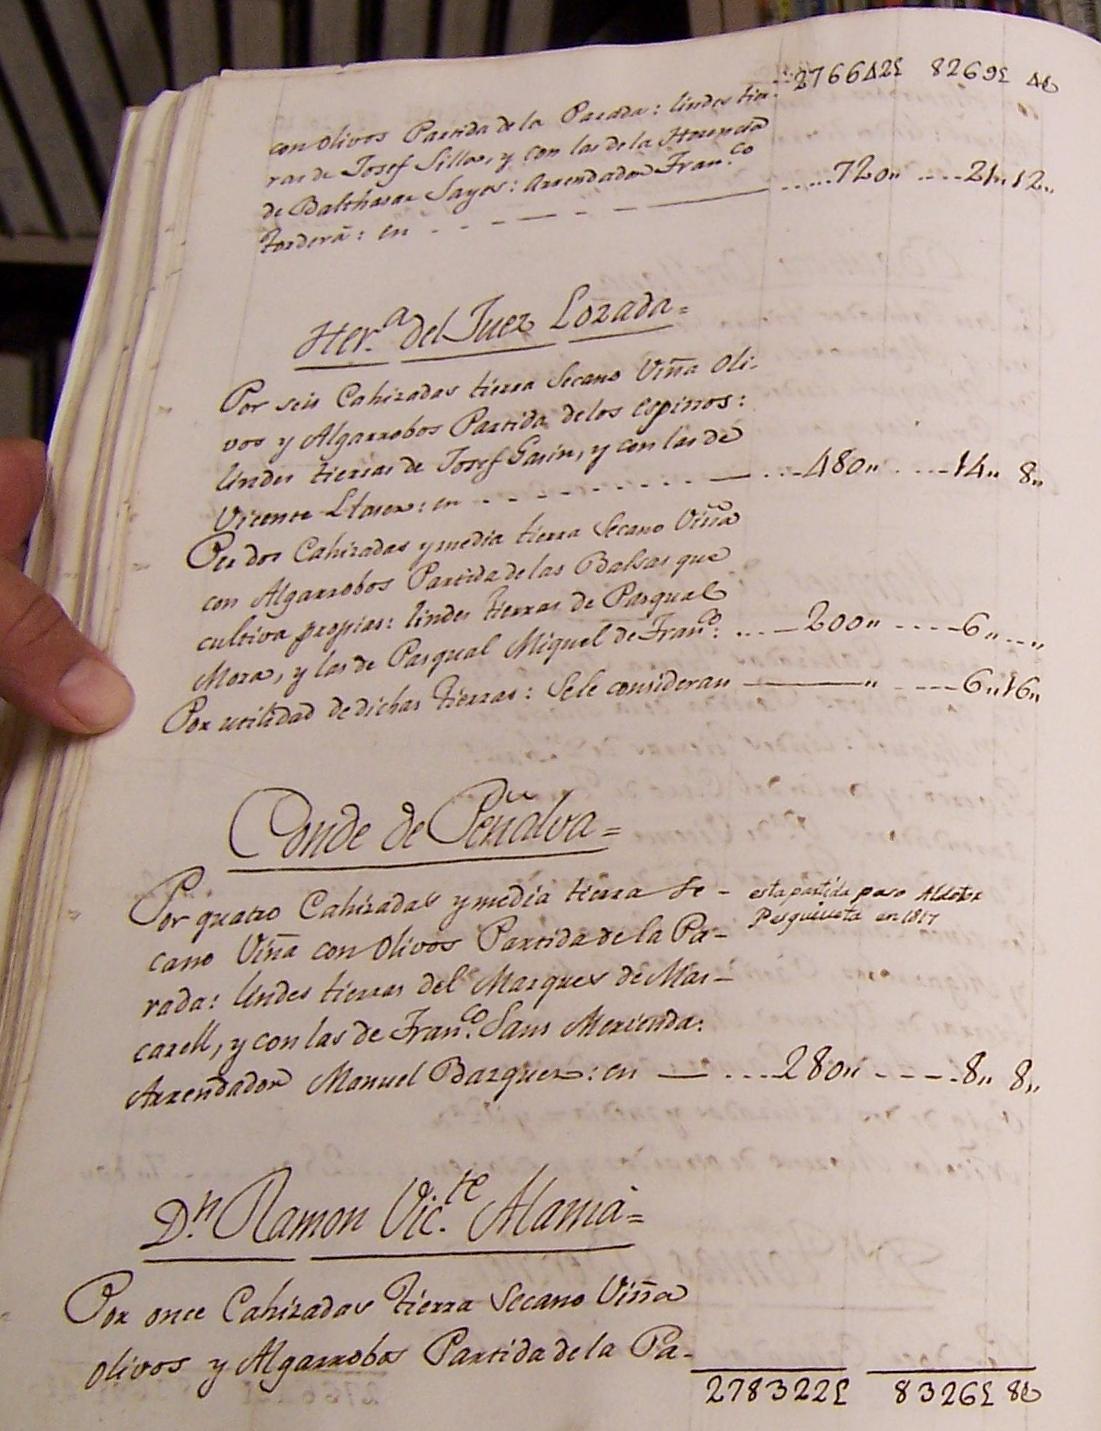 276642£ 8269£ 4
con olivos Partida de la Parada: lindes tier-
ras de Josef Silla, y con las de la Herencia
de Balthasar Sayos: Arrendador Fran.co
Torderá: en 720,, 21,,12,,
Her.a del Juez Lozada=
Por seis Cahizadas tierra Secano Viña Oli-
vos y Algarrobos Partida de los Espinos:
lindes tierras de Josef Garin, y con las de
Vicente Llorca: en 480,, 14,, 8,,
Por dos Cahizadas y media tierra Secano Viña
con Algarrobos Partida de las Balsas que
cultiva propias: lindes tierras de Pasqual
Mora, y las de Pasqual Miquel de Fran.co: 200,, 6,, ,,
Por utilidad de dichas Tierras: Sele consideran ,, 6,,16,,
Conde de Peñalva=
Por quatro Cahizadas y media tierra Se- esta partida paso
cano Viña con Olivos Partida de la Pa- en 1817
rada: lindes tierras del Marques de Mal-
carell, y con las de Fran.co Sans Merienda:
Arrendador Manuel Bazquez: en 280,, 8,, 8,,
D.n Ramon Vic.te Alamá=
Por once Cahizadas Tierra Secano Viña
Olivos y Algarrobos Partida de la Pa-
278322£ 8326£ 8